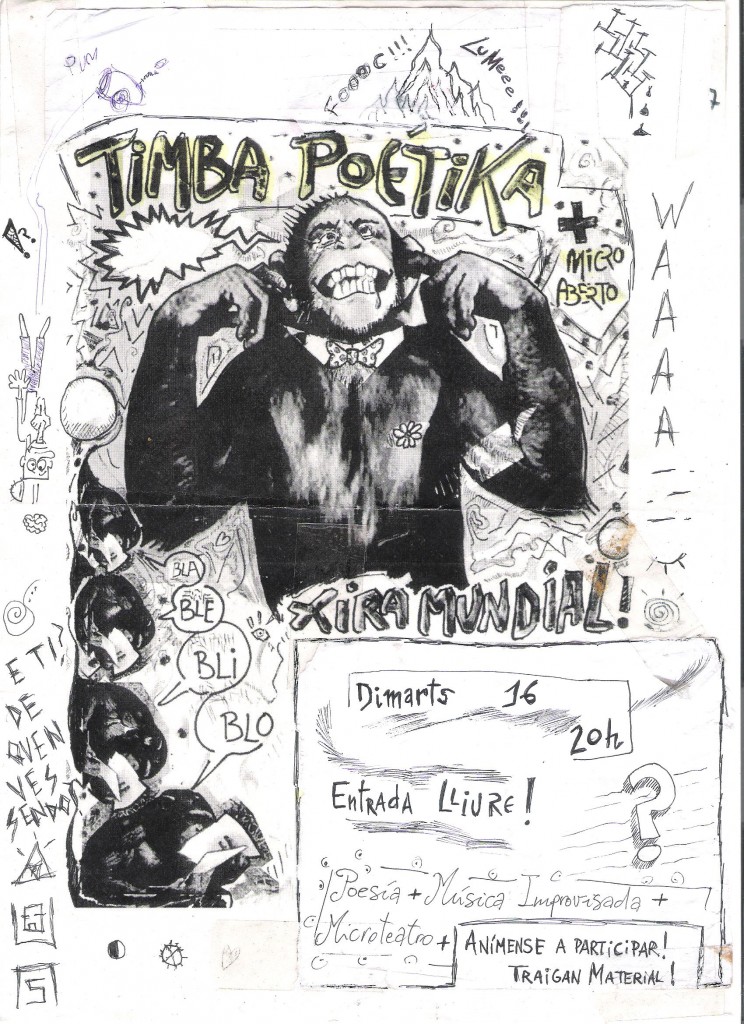 PUM
FOOOC!!!
LUMEEE!!!
7
TIMBA POÉTIKA
+
MICRO
ABERTO
WAAAA
BLA
BLE
BLI
BLO
XIRA MUNDIAL!
E TI?
DE
QUEN
VES
SENDO?
5
Dimarts 16
20h
ENTRADA LLIURE!
?
Poesía + Música Improvisada +
Microteatro +
ANÍMENSE A PARTICIPAR!
TRAIGAN MATERIAL!